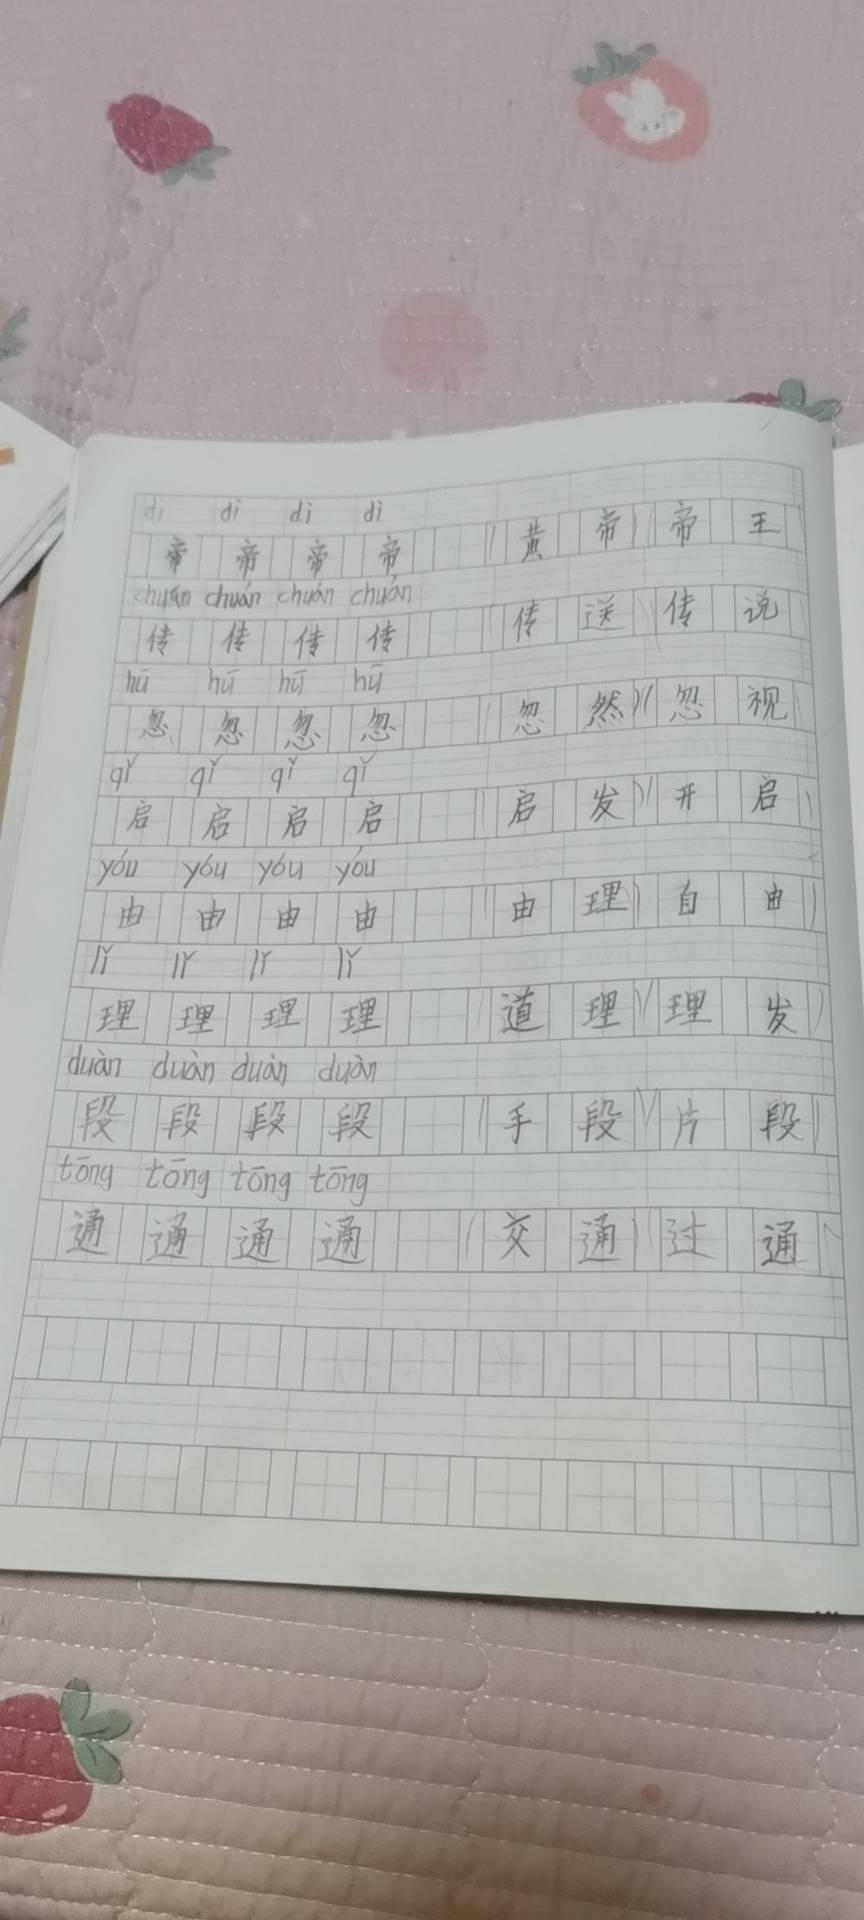 dì dì dì dì
帝 帝 帝 帝 (黄 帝)(帝 王)
chuán chuán chuán chuán
传 传 传 传 (传 送)(传 说)
hū hū hū hū
忽 忽 忽 忽 (忽 然)(忽 视)
qǐ qǐ qǐ qǐ
启 启 启 启 (启 发)(开 启)
yóu yóu yóu yóu
由 由 由 由 (由 理)(自 由)
lǐ lǐ lǐ lǐ
理 理 理 理 (道 理)(理 发)
duàn duàn duàn duàn
段 段 段 段 (手 段)(片 段)
tōng tōng tōng tōng
通 通 通 通 (交 通)(过 通)